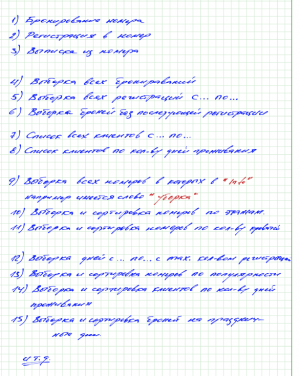 1) Бронирование номера
2) Регистрация в номер
3) Выписка из номера
4) Выборка всех бронирований
5) Выборка всех регистраций с... по...
6) Выборка броней без последующей регистрации
7) Список всех клиентов с... по...
8) Список клиентов по кол-ву дней проживания
9) Выборка всех номеров в которых в "info"
например имеется слово "уборка"
10) Выборка и сортировка номеров по этажам
11) Выборка и сортировка номеров по кол-ву
12) Выборка дней с... по... с max. кол-вом регистраций
13) Выборка и сортировка номеров по популярности
14) Выборка и сортировка клиентов по кол-ву дней
проживания
15) Выборка и сортировка броней на празднич-
ные дни
и т.д.